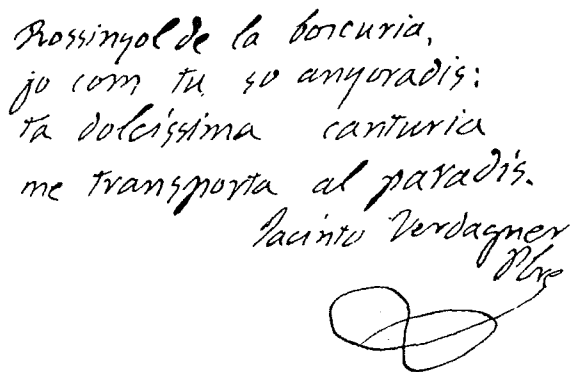 Rossinyol de la boscuria,
jo com tu so anyoradis:
ta dolcíssima canturia
me transporta al paradís.
Jacinto Verdaguer
Pbre